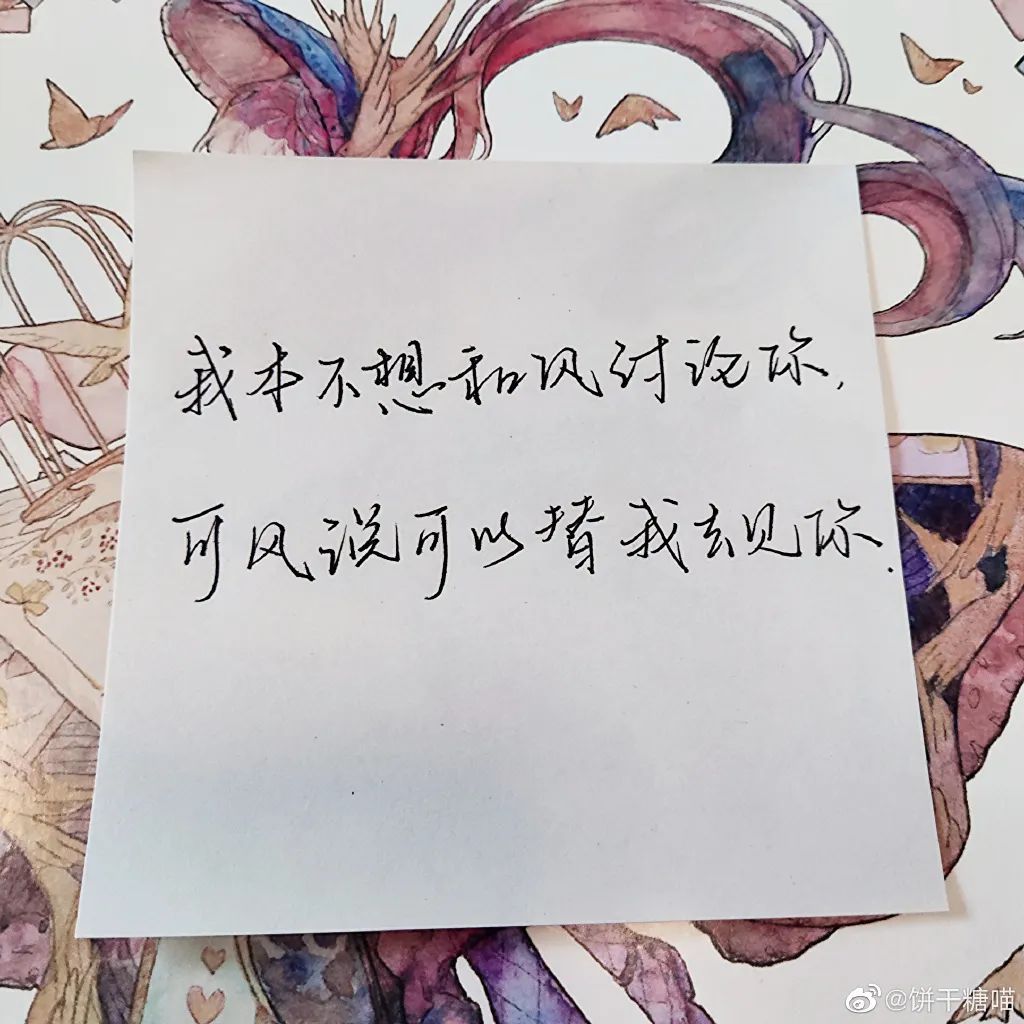 我本不想和风讨论你,
可风说可以替我去见你.
@饼干糖喵